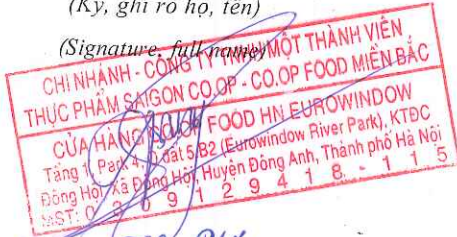 (Ký, ghi rõ họ, tên)
(Signature, full name)
CHI NHÁNH - CÔNG TY TNHH MỘT THÀNH VIÊN
THỰC PHẨM SAIGON CO.OP - CO.OP FOOD MIỀN BẮC
CỬA HÀNG CO.OP FOOD HN EUROWINDOW
Tầng 1, Park 4, lô đất 5.B2 (Eurowindow River Park), KTĐC
Đông Hội, Xã Đông Hội, Huyện Đông Anh, Thành phố Hà Nội
MST: 0309129418-115